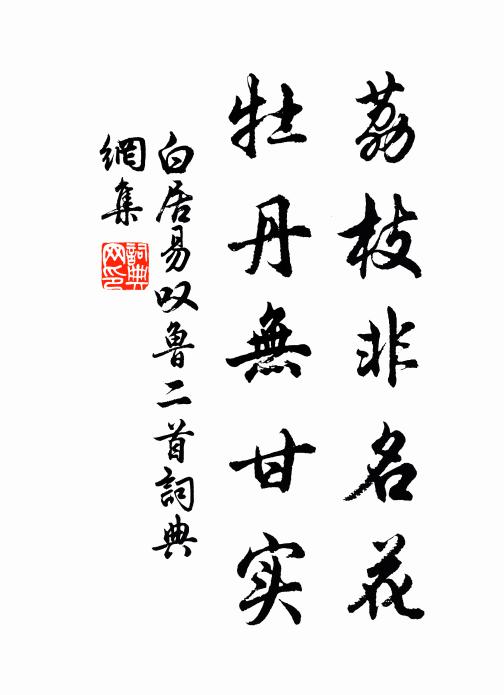 荔枝非名花
牡丹無甘实
白居易叹鲁二首詞典
網集
詞典
网印